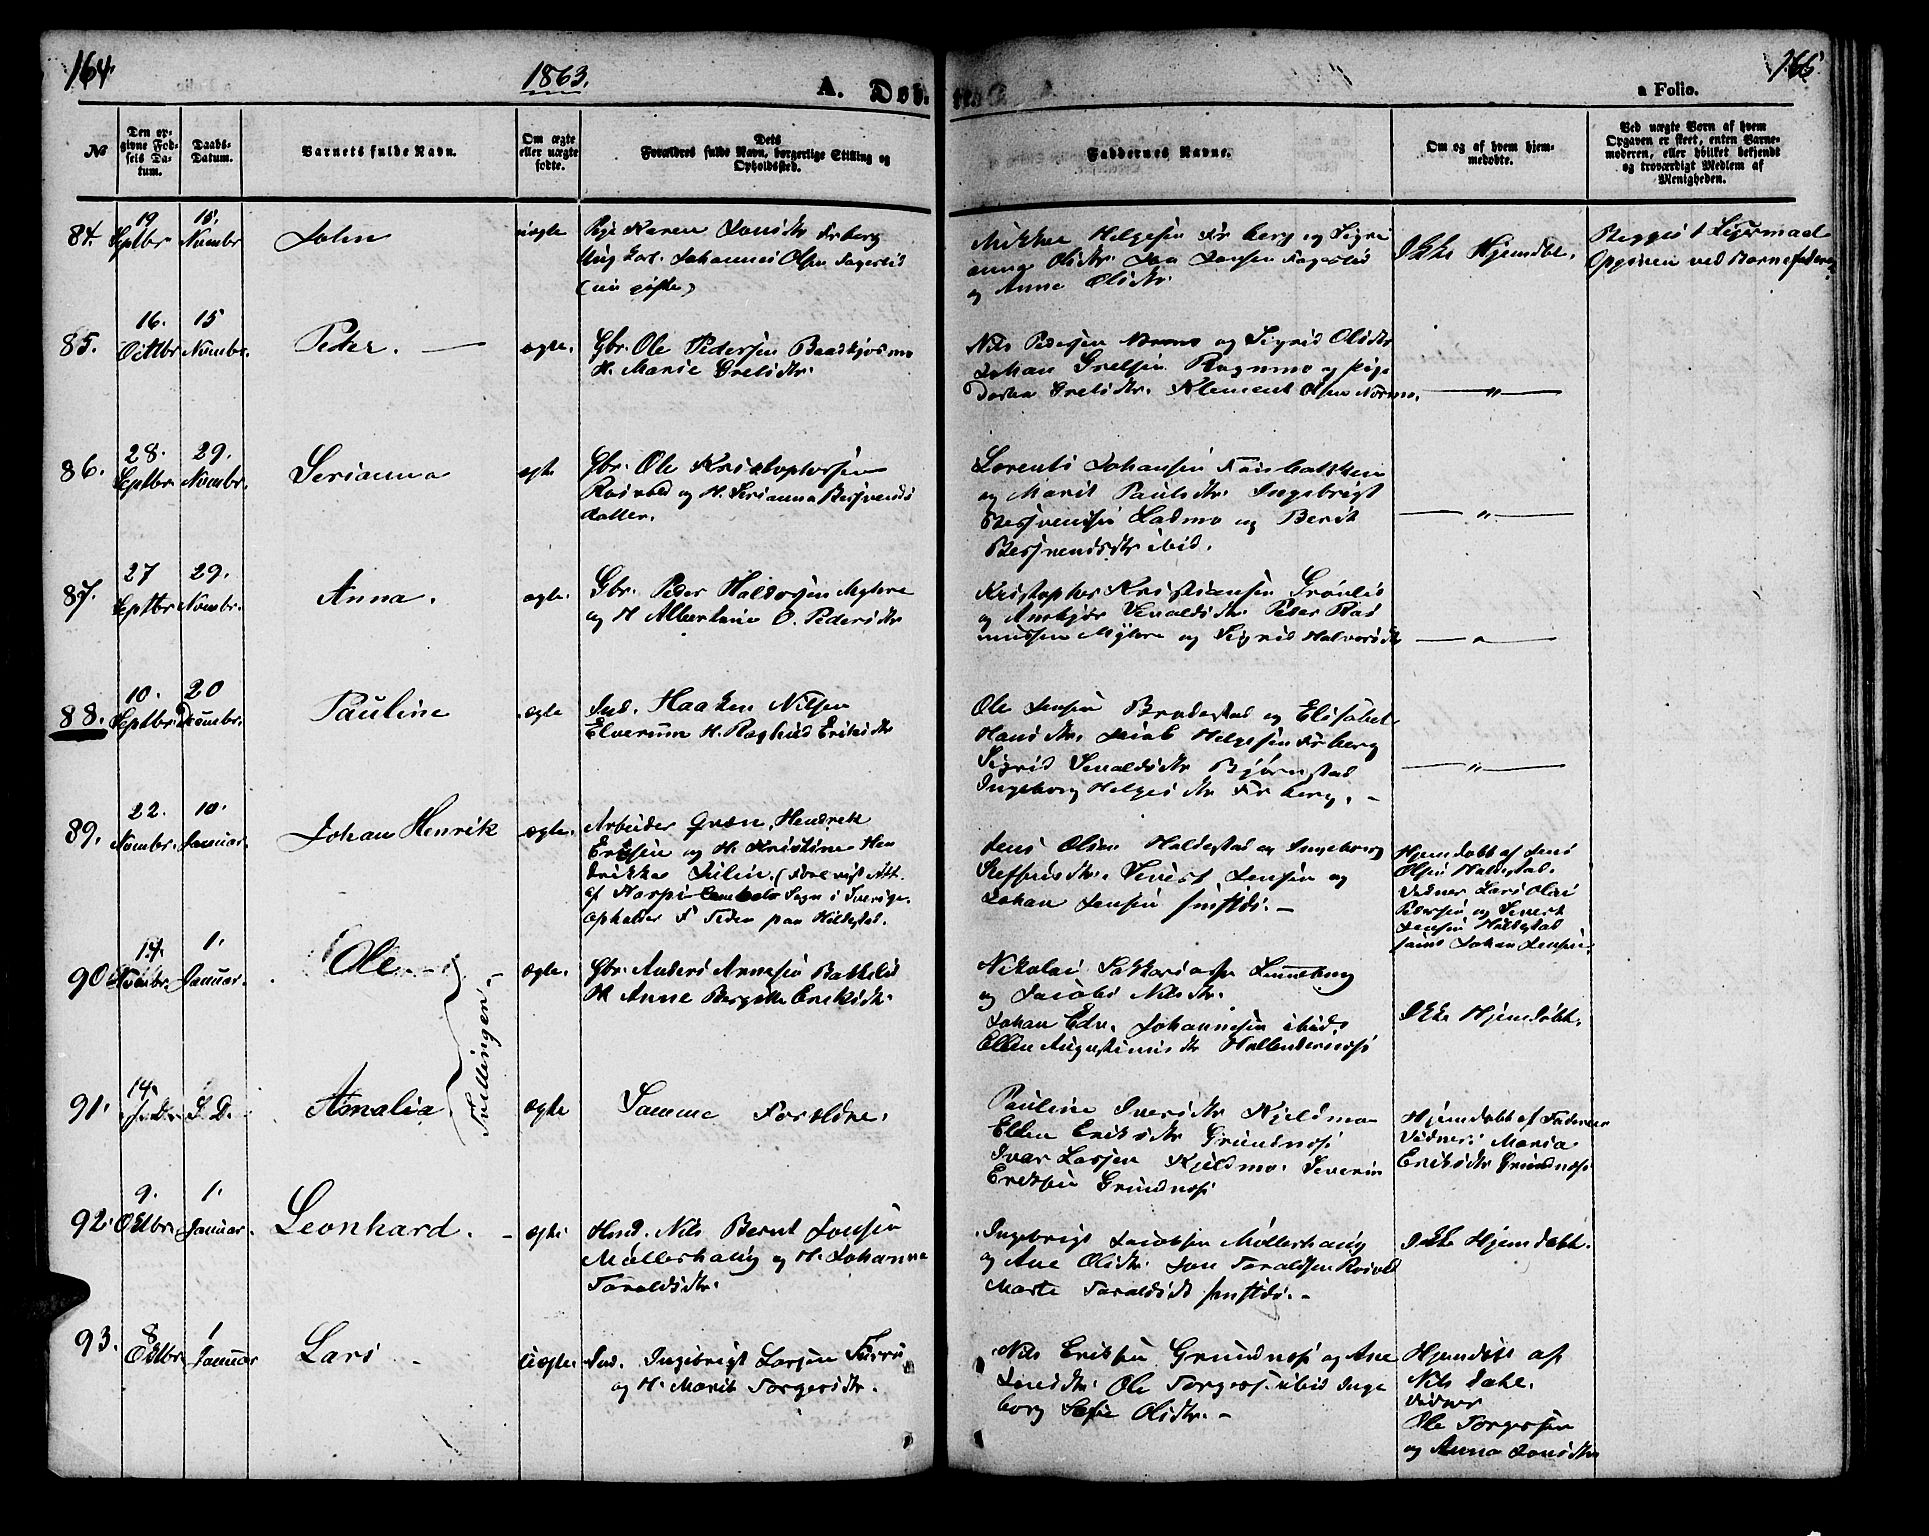 164.
1863.
A. Døb
165
a Folio.
No
Den opgivne Fødsels Datum.
Daabs-Datum.
Barnets fulde Navn.
Om ægte eller uægte fødte.
Dets
Forældres fulde Navn, borgerlige Stilling og
Opholdssted.
Faddernes Navne.
Om og af hvem hjemmedøbte.
Ved uægte Børn af hvem
Opgaven er skeet, enten Barnemoderen,
eller hvilket bekjendt
og troværdigt Medlem af
Menigheden.
84. 19 Septbr 15. Novmbr John uægte
Pige Karen Jonsdtr Frberg
Ung Karl Johannes Olsen Fagerlid
Mikkel Helgesen Frberg og
og Anne Olsdtr.
Ikke Hjemdbt.
Begges 1 Leiermaal
Opgiven ved Barnefaderen
85. 16. Octbr 15 Novmbr. Peder. ægte.
Gbr. Ole Pedersen Baadkjosmo
H. Marie Grelsdtr.
Nils Pedersen og Sigrid Olsdtr
Johan Grelsen og pige
Grelsdtr. Klement Olsen
— " —
86. 28. Septbr 29. Novmbr. Serianna ægte
Gbr. Ole Kristophersen
og H. Serianna
datter.
Lorents Johansen
og Marit Paulsdtr. Ingebrigt
og Berit
ibid.
— " —
87. 27 Septbr 29. Novmbr. Anna. ægte.
Gbr. Peder Halvorsen Myhre
og H Albertine O. Pedersdtr
Kristopher Kristiansen Grønlid
og Peder Ras
mussen Myhre og Sigrid Halvorsdtr
— " —
88. 10. Septbr. 20 Decmbr. Pauline ægte
Ind. Haaken Nilsen
Elverum H. Raghild Eriksdtr
Ole Jensen og Elisabet
Hansdtr. Jacob Helgesen Frberg
Sigrid Bjørnstad
Ingeborg Helgesdtr Frberg. -
— " —
89. 22. Novmbr. 10. Januar. Johan Henrik ægte.
Arbeider Qvæn, Hendrik
Eriksen og H. Kristine Hen
drikka
Sogn i Sverige.
opholder paa Holdestad.
Jens Olsen Holdestad og Ingeborg
Sivert Jensen og
Johan Jensen -
Hjemdøbt af Jens
Olsen Holdestad.
Vidner Lars Olai
Pedersen og Sivert
Jensen Holdestad
samt Johan Jensen
90 14. Novmbr. 1. Januar. Ole ægte.
Gbr. Anders Arnesen Bakkelid
H. Anne Bergitte Eriksdtr.
Nikolai
og Nilsdtr.
Johan Edv. Johannesen ibid.
Ellen Augustinusdtr
Ikke Hjemdøbt.
Tvillinger -
91. 14. S. D. Amalia ægte
Samme Forældre.
Pauline Iversdtr Kjeldmo
Ellen Eriksdtr Grundnæs
Ivar Larsen Kjeldmo. Severin
Eriksen Grundnæs
Hjemdøbt af Faderen
Vidner: Maria
Eriksdtr Grundnæs
92. 9. Octbr. 1. Januar. Leonhard. ægte
Hmd. Nils Bernt Jonsen
Møllerhaug og H. Johanna
Taraldsdtr.
Ingebrigt Jacobsen Møllerhaug
og Ane Olsdtr. Jon Taraldsen
Marte Taraldsdtr -
Ikke Hjemdøbt.
93. 8 Octbr. 1 Januar Lars uægte.
Ind. Ingebrigt Larsen
og H. Marit Torgersdtr.
Nils Eriksen Grundnæs og Ane
Ole Torgersen ibid Inge
borg Olsdtr. -
Hjemdøbt af
Nils Dahl.
Vidner
Ole Torgersen
og Anna Jonsdtr